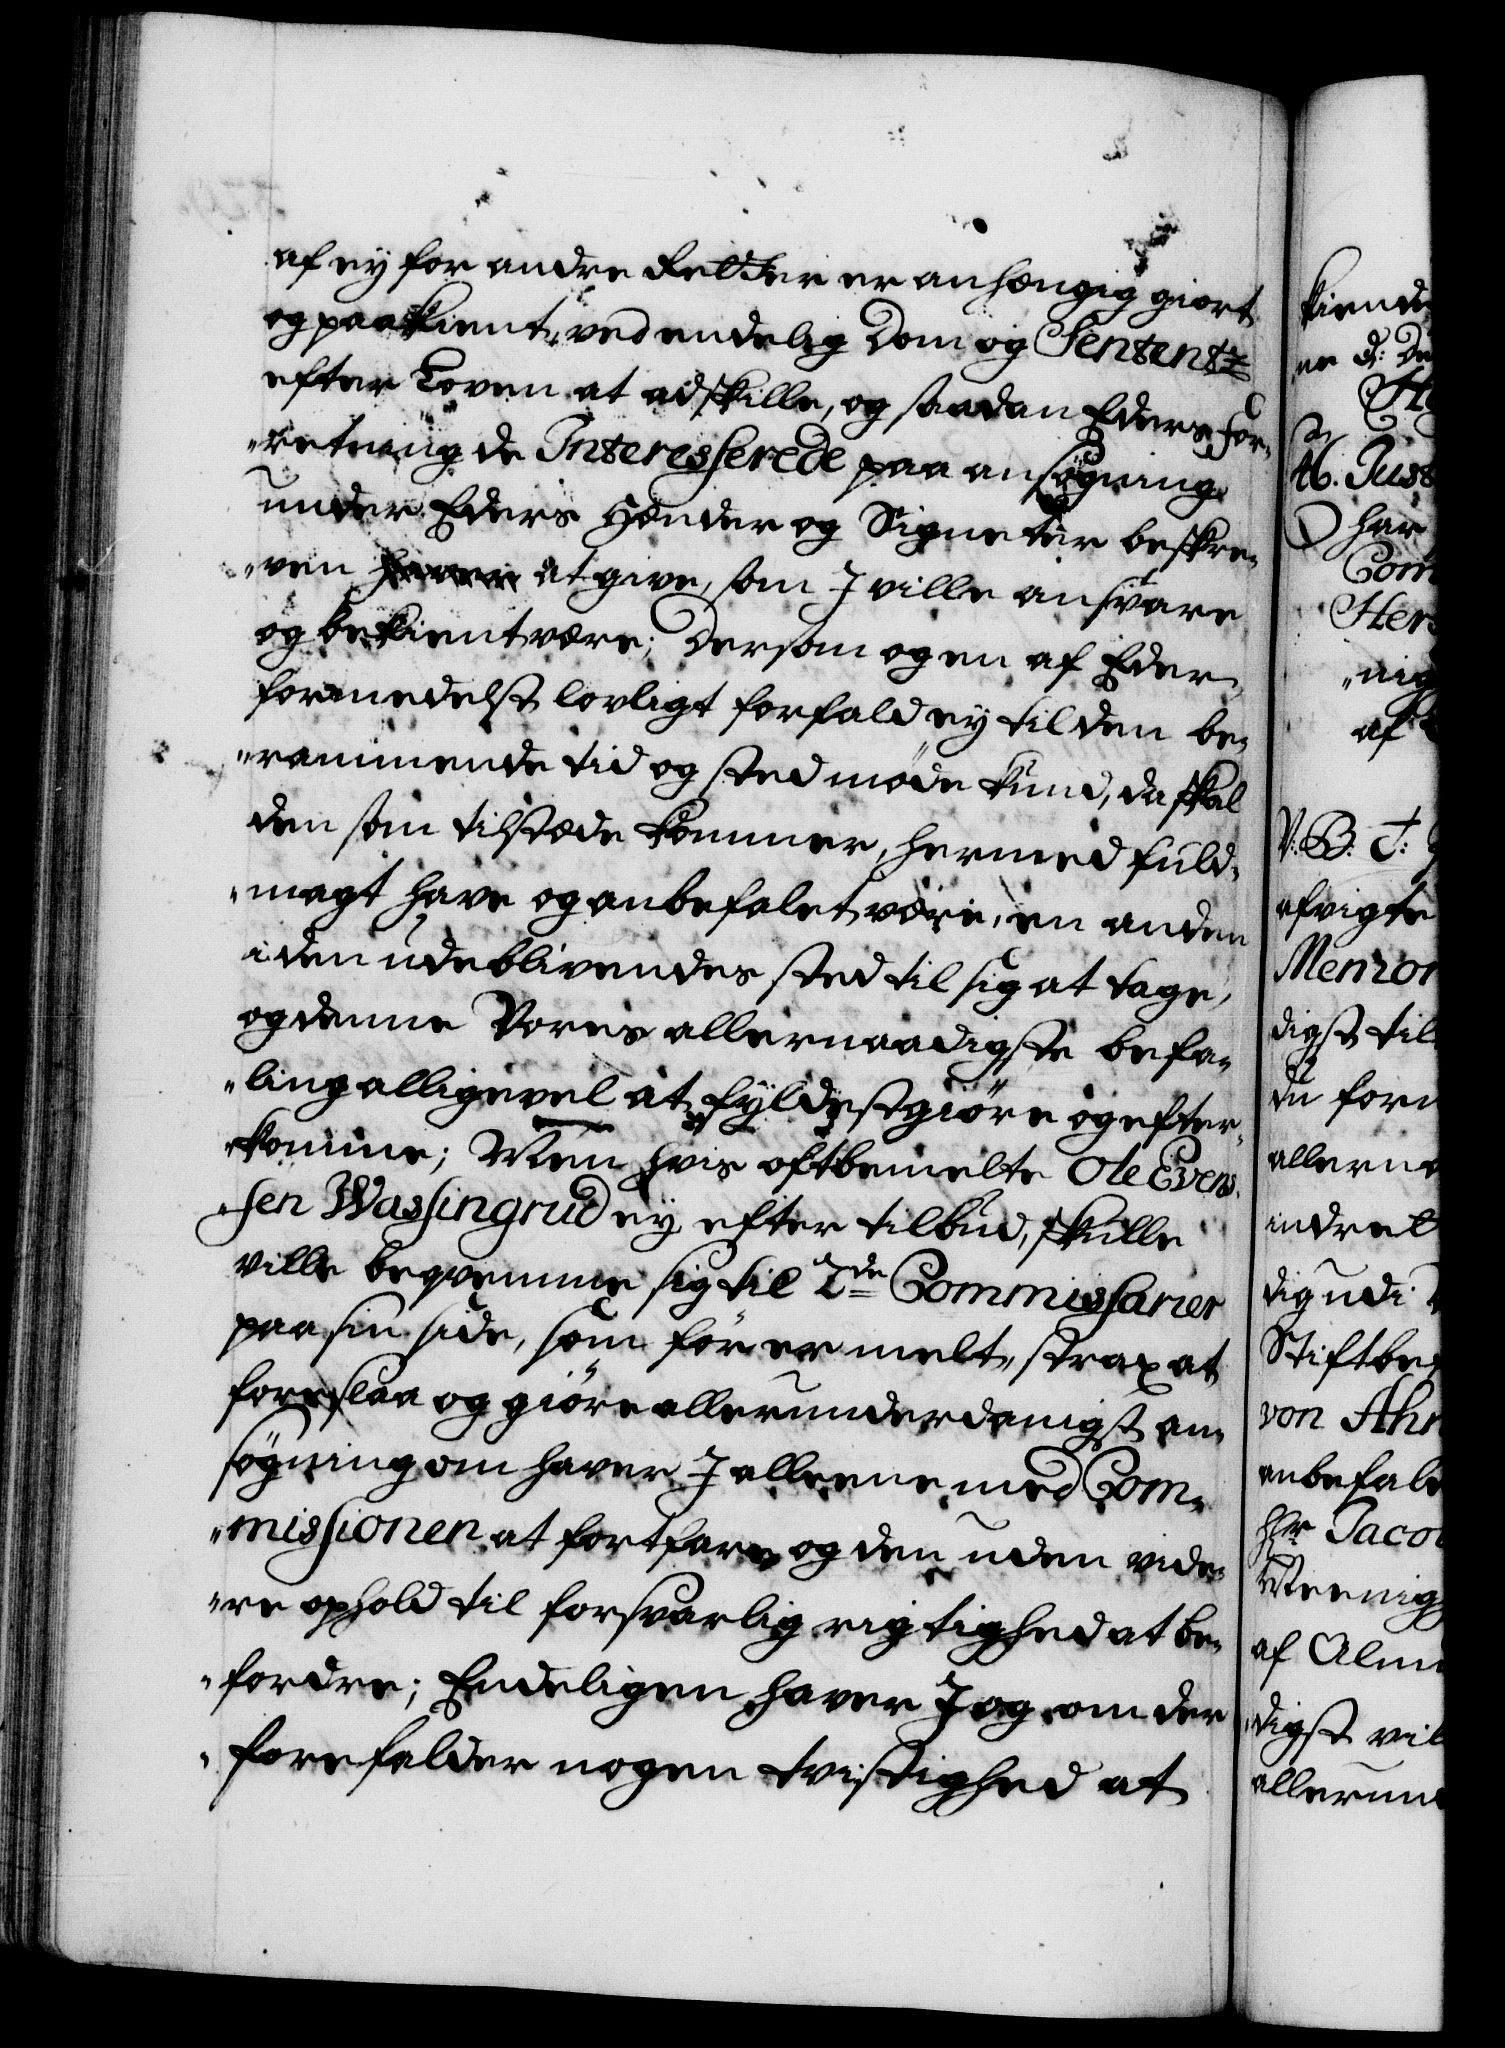 af ey for andre Retter er anhængig giort
og paakient, ved endelig Dom og Sententz
efter Loven at adskille, og saadan Eders for„
„retning de Interesserede paa ansøgning
under Eders Hænder og Signeter beskre„
„ven at give, som I ville ansvare
og bekient være; Dersom og en af Eder,
formedelst lovligt forfald ey til den be„
„rammende tid og sted møde kund, da skal
den som tilstæde kommer, hermed fuld„
„magt have og anbefalet være, en anden
i den udeblivendes sted til sig at tage,
og denne Vores allernaadigste befa„
„ling alligevel at fyldestgiøre og efter„
„komme; Men hvis oftbemelte Ole Evens„
„sen Wassingrud ey efter tilbud, skulle
ville beqvemme sig til 2de Commissarier
paa sin side, som før er melt, strax at
foreslaa og giøre allerunderdanigst an„
søgning om haver I alleene med Com„
„missionen at fortfare og den uden vide„
„re ophold til forsvarlig rigtighed at be„
„fordre; Endeligen haver I og om der
„forefalder nogen tvistighed at
kiende
H. Just
har
Com
Hers
„nig
af
V. B. T.
afvigte
Memor
digst til
du for
allerna
indret
dig udi
Stiftbe
von Ahn
anbefale
Hr Jaco
Meenig
af Alm
digst vil
allerund